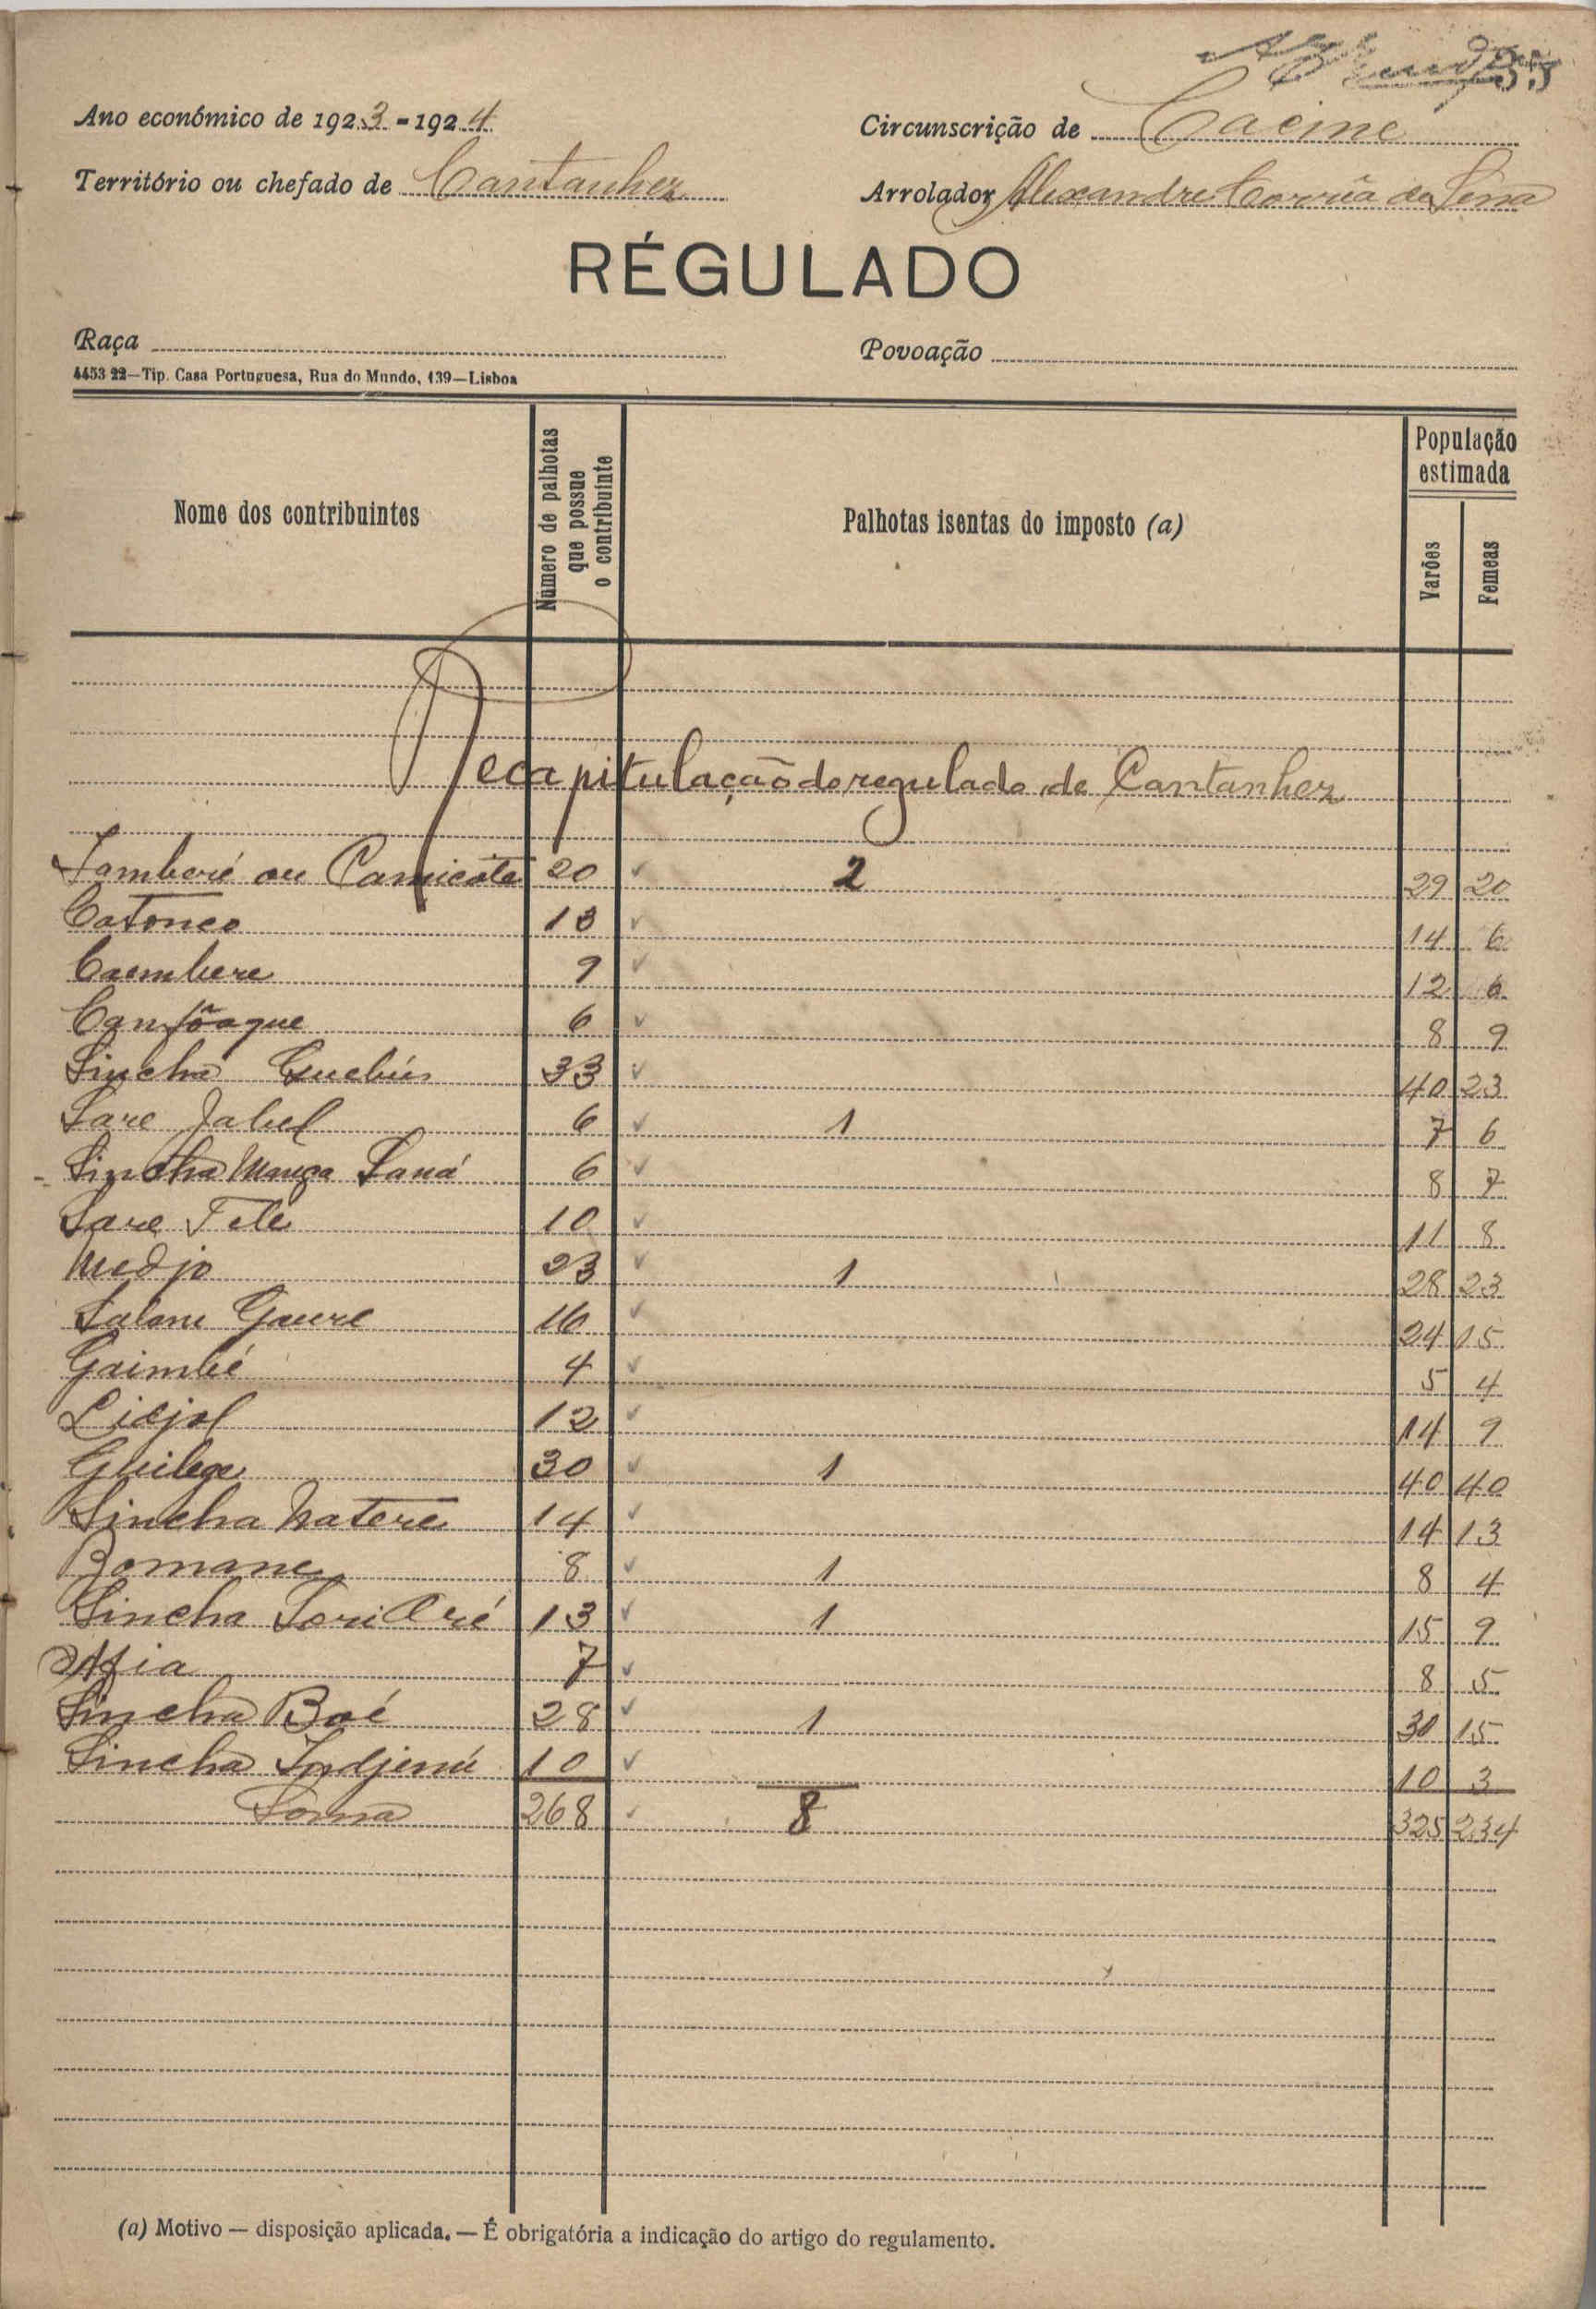 Ano económico de 1923-1924
Circunscrição de Cacine
Território ou chefado de Cantanhez
Arrolador Alexandre Corrêa de Sena
RÉGULADO
Raça
Povoação
4453 22—Tip. Casa Portuguesa, Rua do Mundo, 139—Lisboa
Nome dos contribuintes
Número de palhotas que possue o contribuinte
Palhotas isentas do imposto (a)
População estimada
Varões
Femeas
Recapitulação do regulado de Cantanhez
Tamberé ou Camicote 20 2 29 20
Catonco 13 14 6
Caembere 9 12 6
Canfôaque 6 8 9
Sincha Guebús 33 40 23
Sare Jabel 6 1 7 6
Sincha Manga Saná 6 8 7
Sare Tele 10 11 8
Medjo 23 1 28 23
Salanu Gauré 16 24 15
Gaimbé 4 5 4
Lidjol 12 14 9
Guilege 30 1 40 40
Sincha Natere 14 14 13
Bomane 8 1 8 4
Sincha Sori Oré 13 1 15 9
Afia 7 8 5
Sincha Boé 28 1 30 15
Sincha Indjenú 10 10 3
Soma 268 8 325 234
(a) Motivo — disposição aplicada. — É obrigatória a indicação do artigo do regulamento.